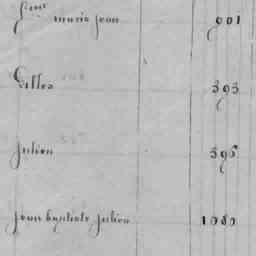 marie jean 901
Gilles 393
Julien 396
jean baptiste julien 1080